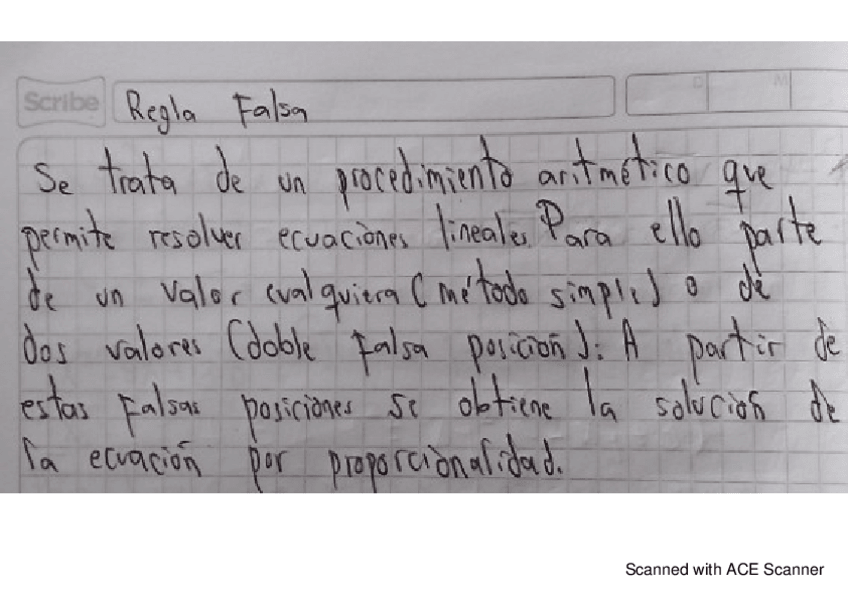 Scribe
Regla Falsa
D
M
Se trata de un procedimiento aritmético que
permite resolver ecuaciones lineales. Para ello parte
de un valor cualquiera (método simple) o de
dos valores (doble Falsa posición): A partir de
estas Falsas posiciones se obtiene la solución de
la ecuación por proporcionalidad.
Scanned with ACE Scanner